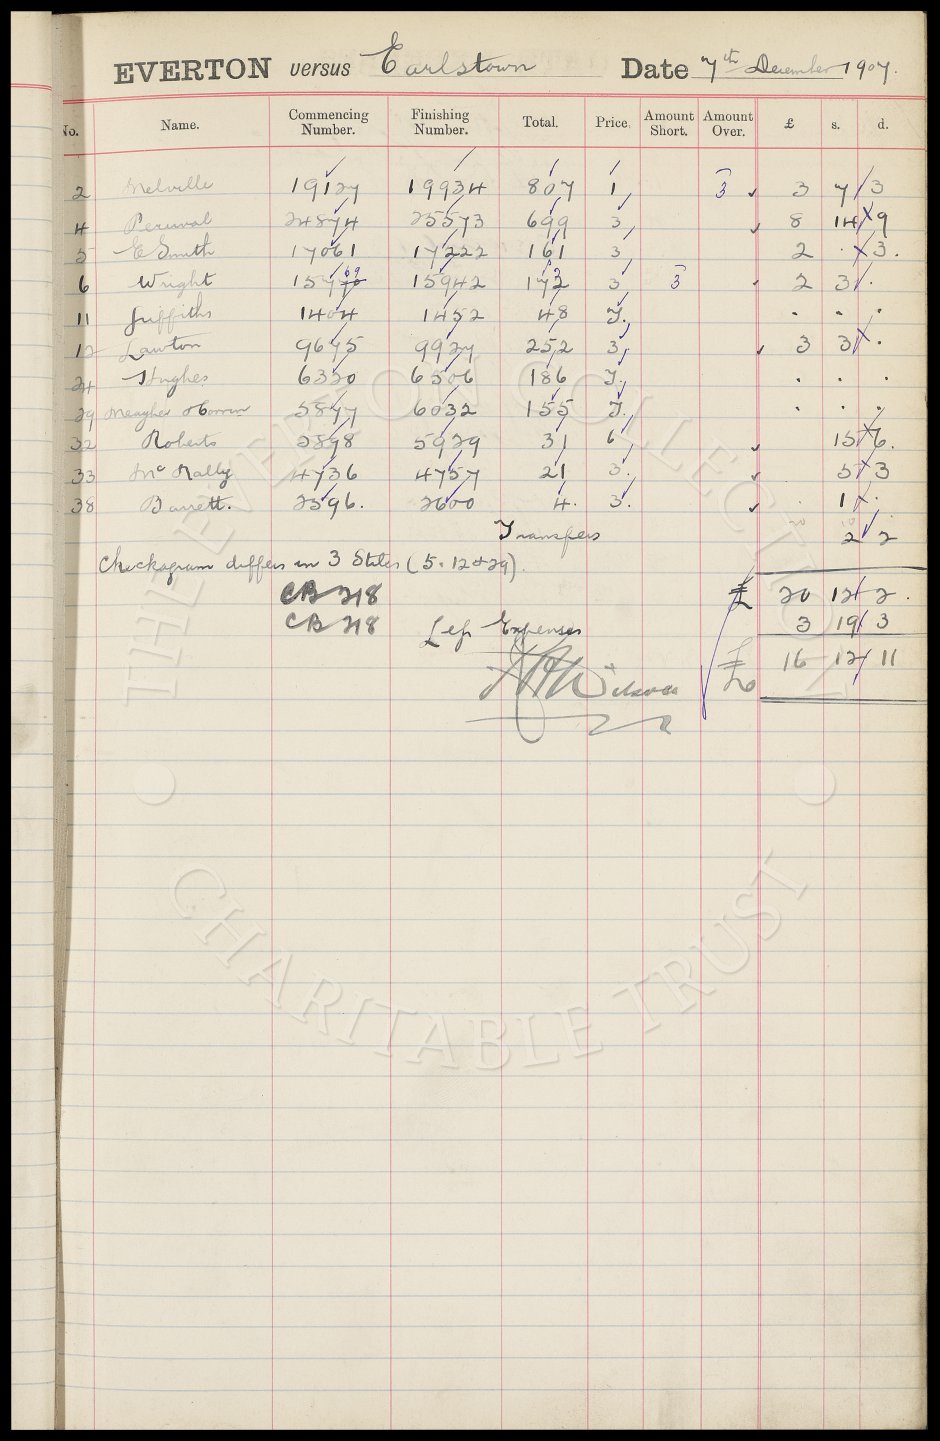 EVERTON versus Earlstown Date 7th December 1907.
No. Name. Commencing Number. Finishing Number. Total. Price. Amount Short. Amount Over. £ s. d.
2 Melville 19127 19934 807 1 3 3 7 3
4 Percival 24874 25573 699 3 8 14 9
5 E Smith 17061 17222 161 3 2 . 3.
6 Wright 15770 69 15942 173 3 3 2 3 .
11 Griffiths 1404 1452 48 T. . . .
12 Lawton 9675 9927 252 3 3 3 .
24 Hughes 6320 6506 186 T. . . .
29 Meagher 5877 6032 155 T. . . .
32 Roberts 5898 5929 31 6 15 6.
33 Mc Nally 4736 4757 21 3. 5 3
38 Barrett. 2596. 2600 4. 3. . 1 .
Transfers 2 2
Checkagram differs in 3 Stiles (5. 12 & 29).
CB 218 £ 20 12 2.
CB 218 Less Expenses 3 19 3
Wilson £ 16 12 11
THE EVERTON COLLECTION
CHARITABLE TRUST